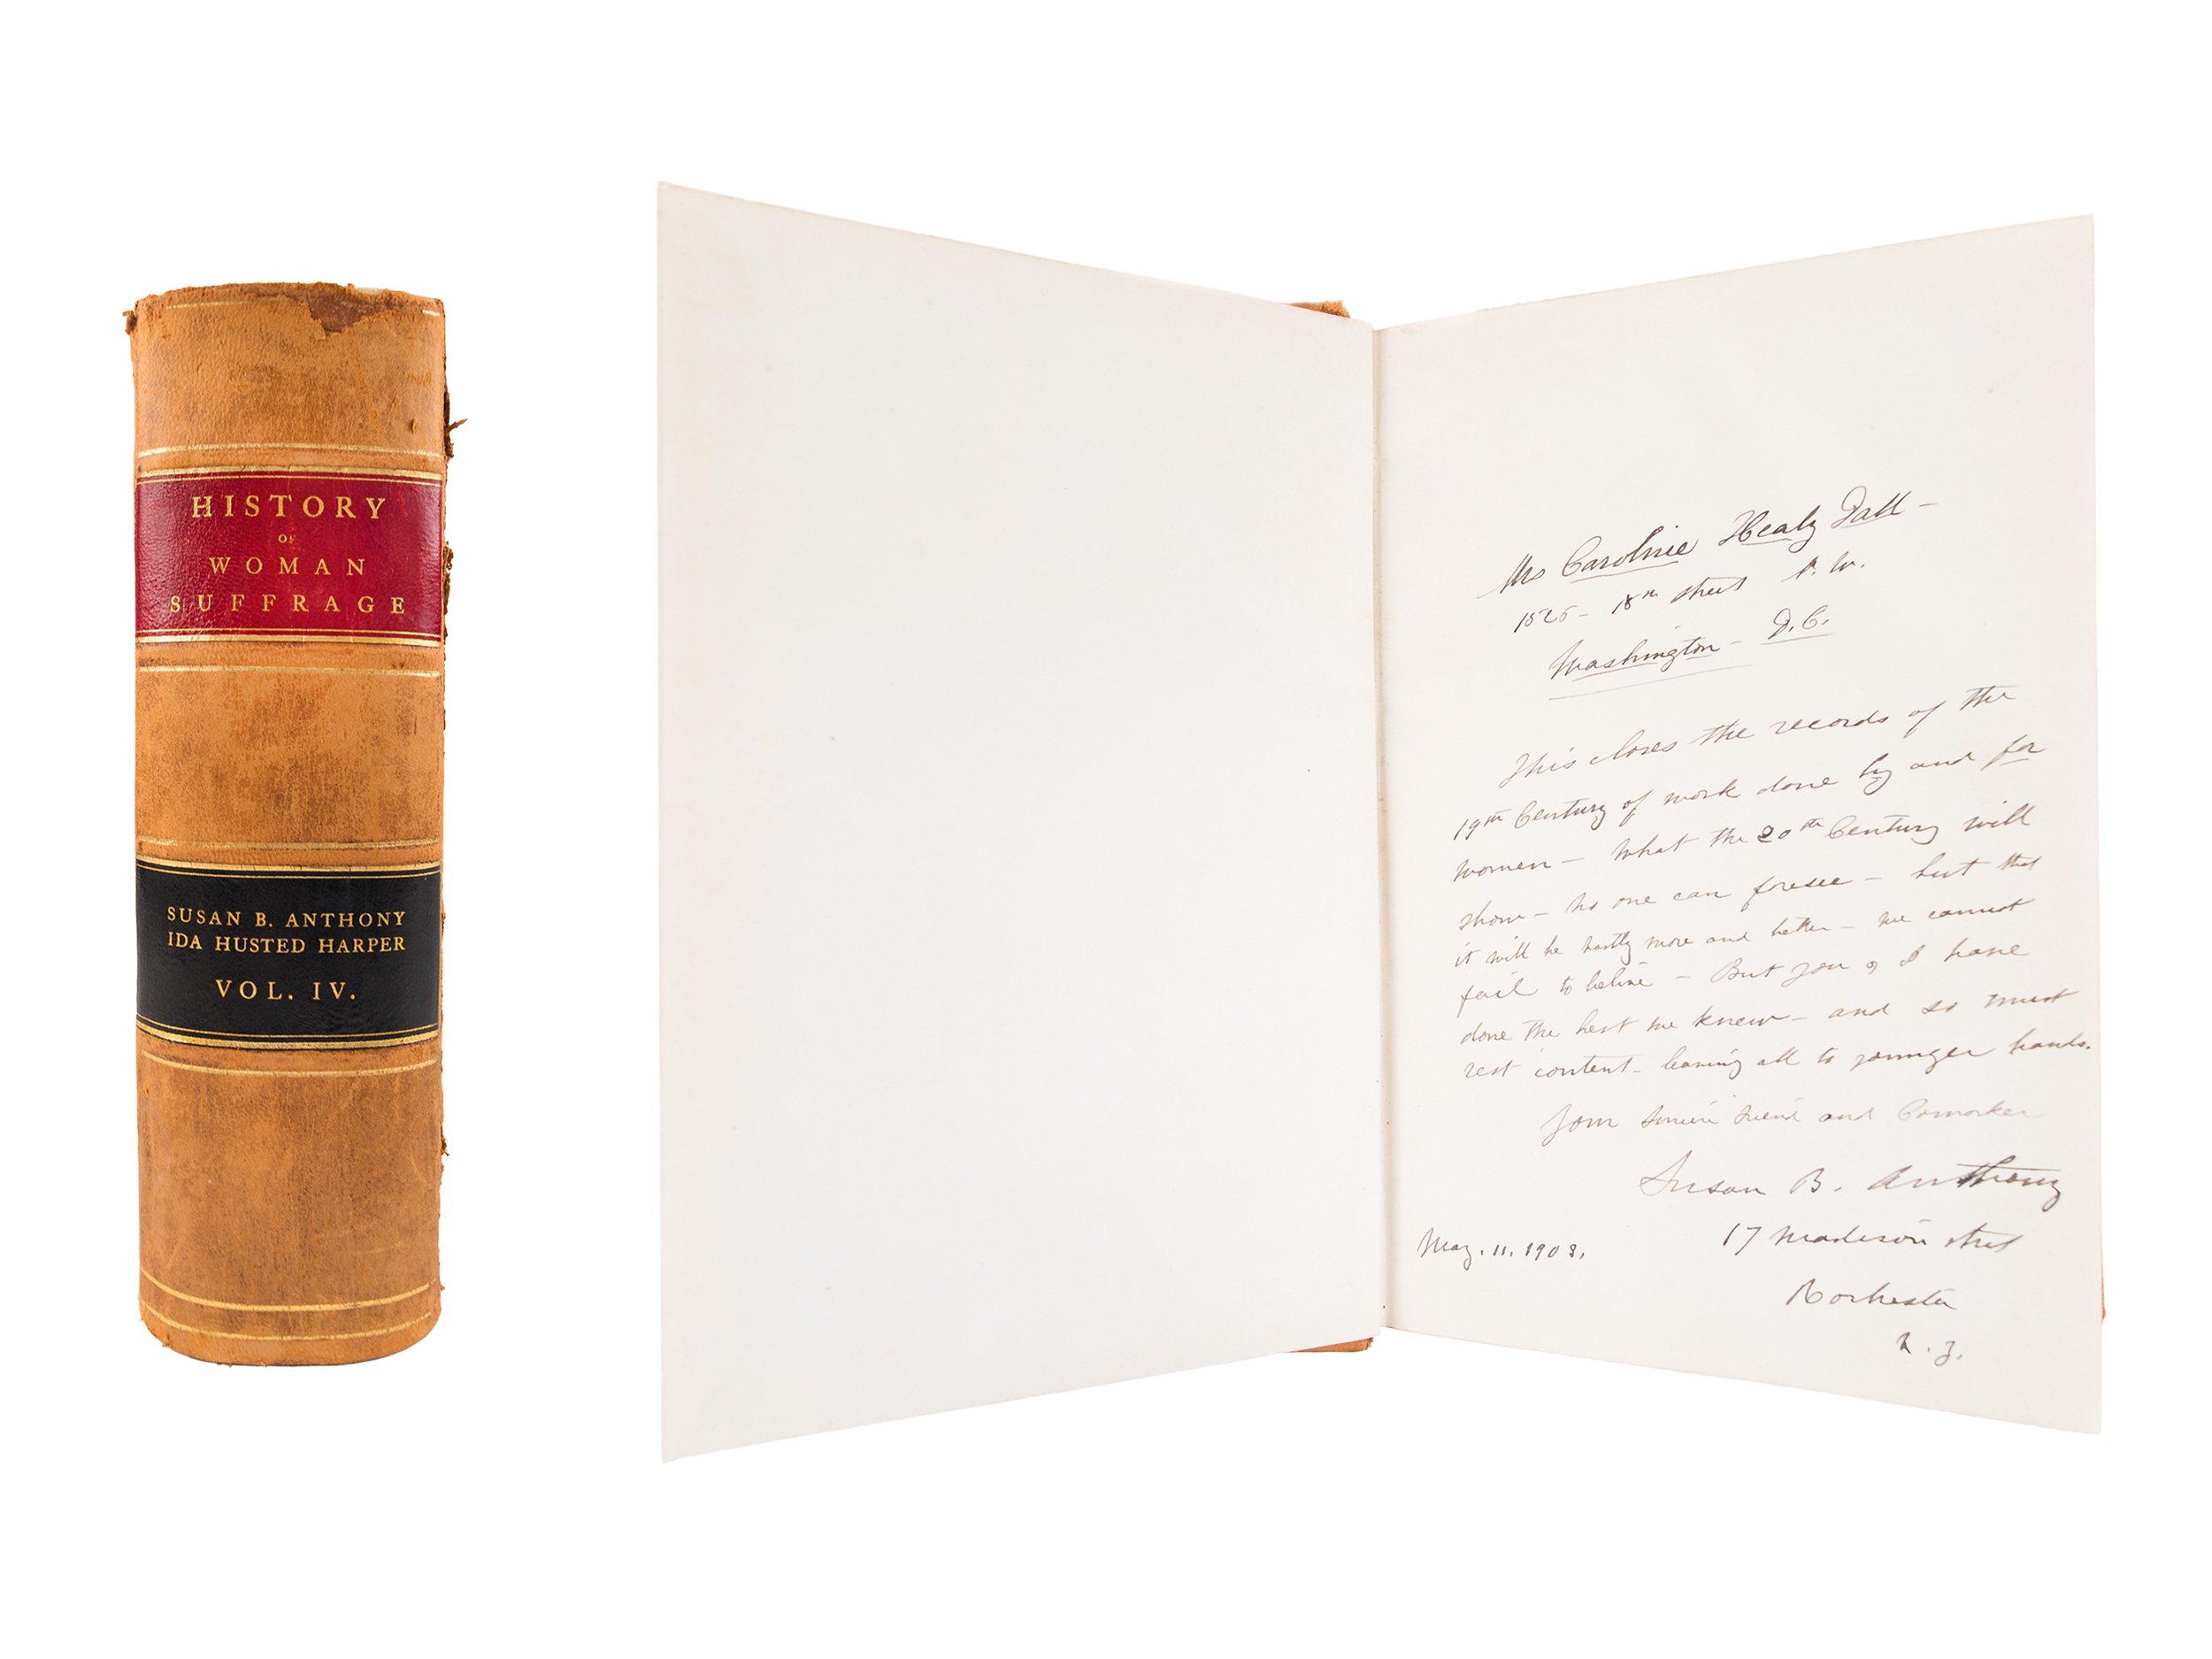 HISTORY
OF
WOMAN
SUFFRAGE
SUSAN B. ANTHONY
IDA HUSTED HARPER
VOL. IV.
Mrs Caroline Healy Dall –
1526 – 18th street N. W.
Washington – D.C.
This closes the records of the
19th Century of work done by and for
women – What the 20th Century will
show – no one can foresee – but that
it will be vastly more and better – we cannot
fail to believe – But you & I have
done the best we knew – and so must
rest content – leaving all to younger hands.
Your sincere friend and Coworker
Susan B. Anthony
May. 11. 1903.
17 Madison street
Rochester
N. Y.